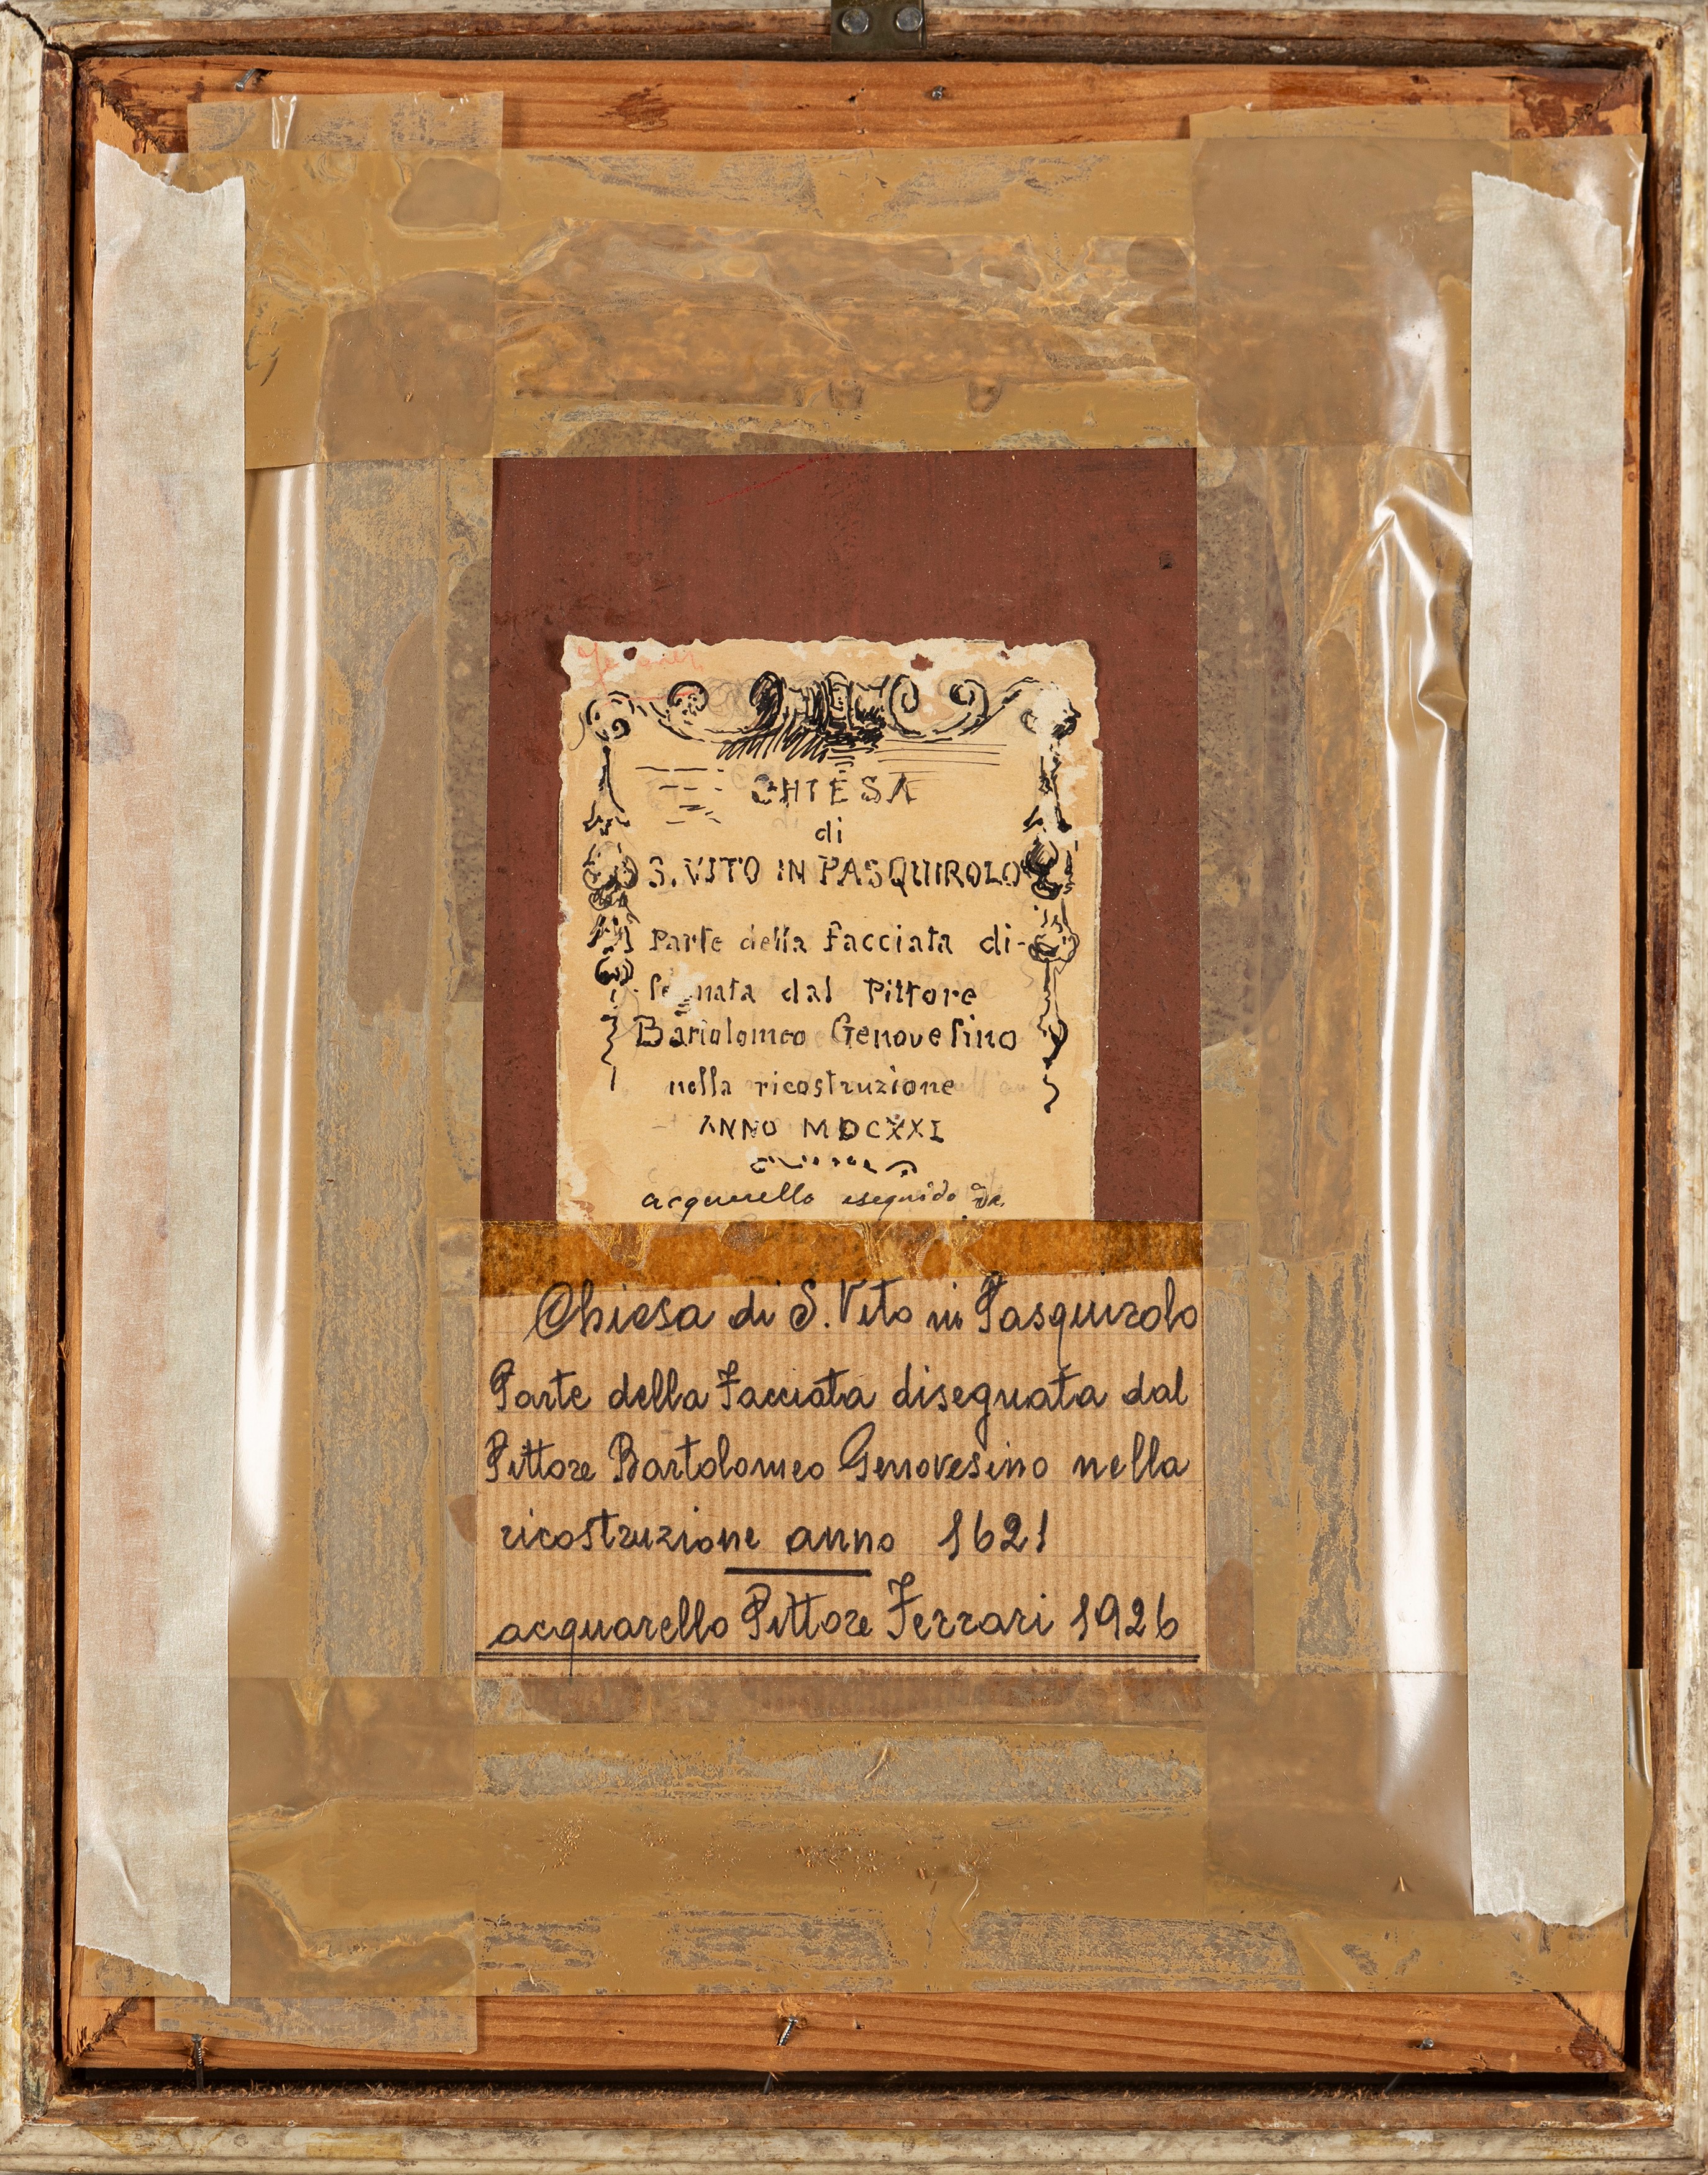 CHIESA
di
S. VITO IN PASQUIROLO
Parte della facciata di-
segnata dal Pittore
Bartolomeo Genovesino
nella ricostruzione
ANNO MDCXXI
acquerello eseguido da
Chiesa di S. Vito in Pasquirolo
Parte della Facciata diseguata dal
Pittore Bartolomeo Genovesino nella
ricostruzione anno 1621
acquarello Pittore Ferrari 1926